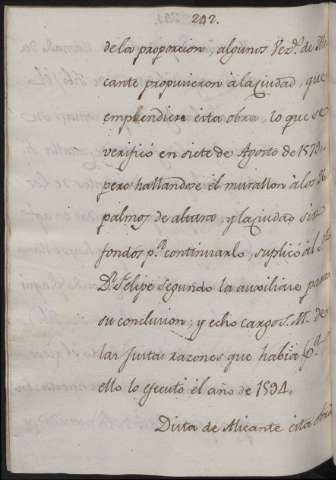 292.
de la proporcion, algunos Vez.s de
cante propusieron á la ciudad, que
emplendiese esta obra, lo que se
verificó en siete de Agosto de 1579,
pero hallandose él murallon á los
palmos de altura, y la ciudad sin
fondos p.a continuarlo, suplicó ál
D.n Felipe segundo la auxiliase para
su conclusion; y echo cargo S. M. de
las Justas razones que habia p.a
ello lo éjecutó él año de 1594.
Dista de Alicante ésta